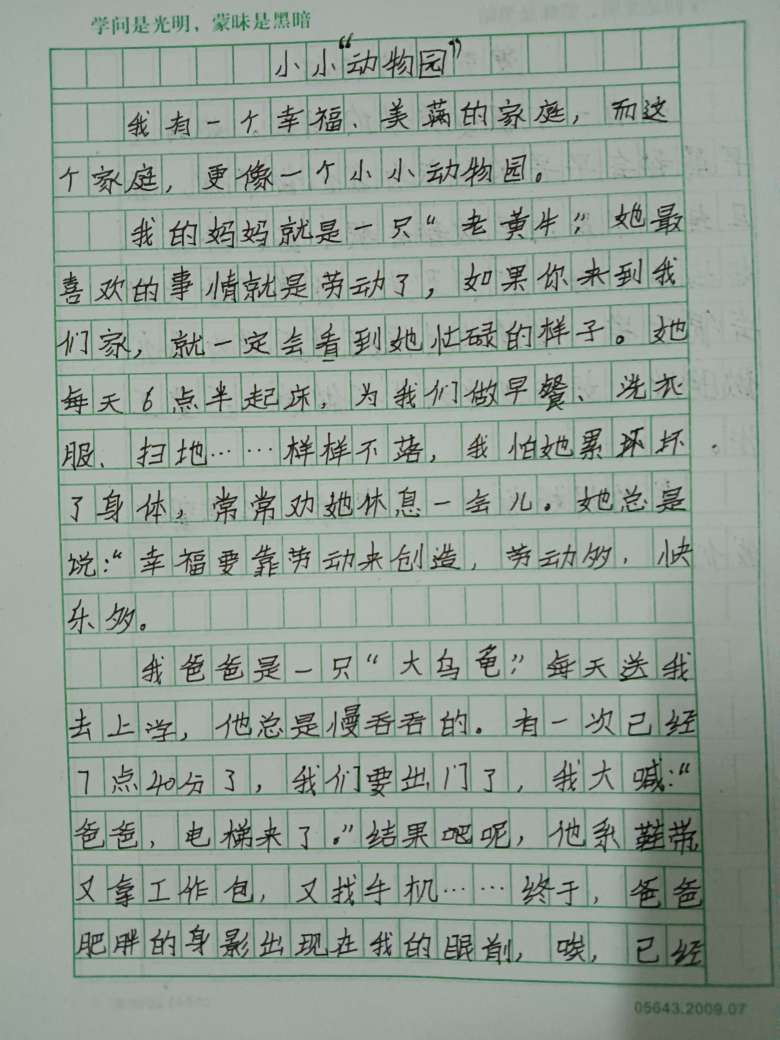 学问是光明，蒙昧是黑暗
小小“动物园”
我有一个幸福、美满的家庭，而这
个家庭，更像一个小小动物园。
我的妈妈就是一只“老黄牛”，她最
喜欢的事情就是劳动了，如果你来到我
们家，就一定会看到她忙碌的样子。她
每天6点半起床，为我们做早餐、洗衣
服、扫地……样样不落，我怕她累坏坏
了身体，常常劝她休息一会儿。她总是
说：“幸福要靠劳动来创造，劳动多，快
乐多。
我爸爸是一只“大乌龟”，每天送我
去上学，他总是慢吞吞的。有一次已经
7点40分了，我们要出门了，我大喊：“
爸爸，电梯来了。”结果吧呢，他系鞋带
又拿工作包，又找手机……终于，爸爸
肥胖的身影出现在我的眼前，唉，已经
05643.2009.07